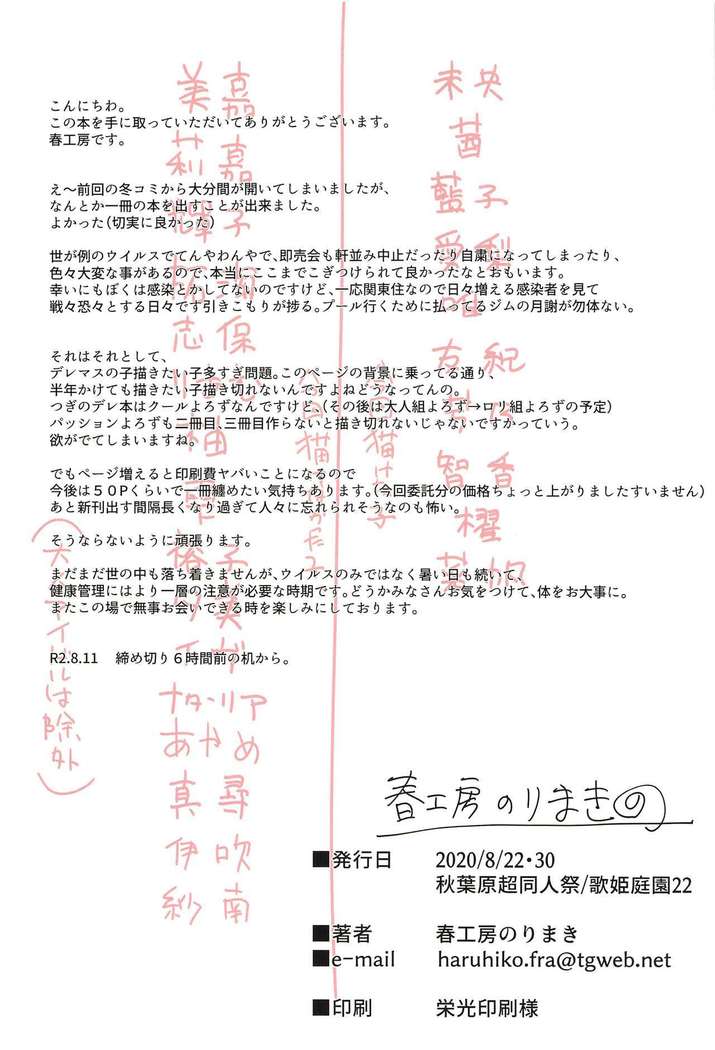 こんにちわ。
この本を手に取っていただいてありがとうございます。
春工房です。
え～前回の冬コミから大分間が開いてしまいましたが、
なんとか一冊の本を出すことが出来ました。
よかった（切実に良かった）
世が例のウイルスでてんやわんやで、即売会も軒並み中止だったり自粛になってしまったり、
色々大変な事があるので、本当にここまでこぎつけられて良かったなとおもいます。
幸いにもぼくは感染とかしてないのですけど、一応関東住なので日々増える感染者を見て
戦々恐々とする日々です引きこもりが捗る。プール行くために払ってるジムの月謝が勿体ない。
それはそれとして、
デレマスの子描きたい子多すぎ問題。このページの背景に乗ってる通り、
半年かけても描きたい子描き切れないんですよねどうなってんの。
つぎのデレ本はクールよろずなんですけど、（その後は大人組よろず→ロリ組よろずの予定）
パッションよろずも二冊目、三冊目作らないと描き切れないじゃないですかっていう。
欲がでてしまいますね。
でもページ増えると印刷費ヤバいことになるので
今後は５０Pくらいで一冊纏めたい気持ちあります。（今回委託分の価格ちょっと上がりましたすいません）
あと新刊出す間隔長くなり過ぎて人々に忘れられそうなのも怖い。
そうならないように頑張ります。
まだまだ世の中も落ち着きませんが、ウイルスのみではなく暑い日も続いて、
健康管理にはより一層の注意が必要な時期です。どうかみなさんお気をつけて、体をお大事に。
またこの場で無事お会いできる時を楽しみにしております。
R2.8.11　締め切り６時間前の机から。
未央
茜
藍子
愛梨
唯
友紀
智香
嘉嘉子
美莉
輝子
拓海
志保
ナターリア
あやめ
真尋
伊吹
紗南
（大人アイドルは除外）
春工房のりまき の
■発行日　2020/8/22・30
秋葉原超同人祭/歌姫庭園22
■著者　春工房のりまき
■e-mail　haruhiko.fra@tgweb.net
■印刷　栄光印刷様